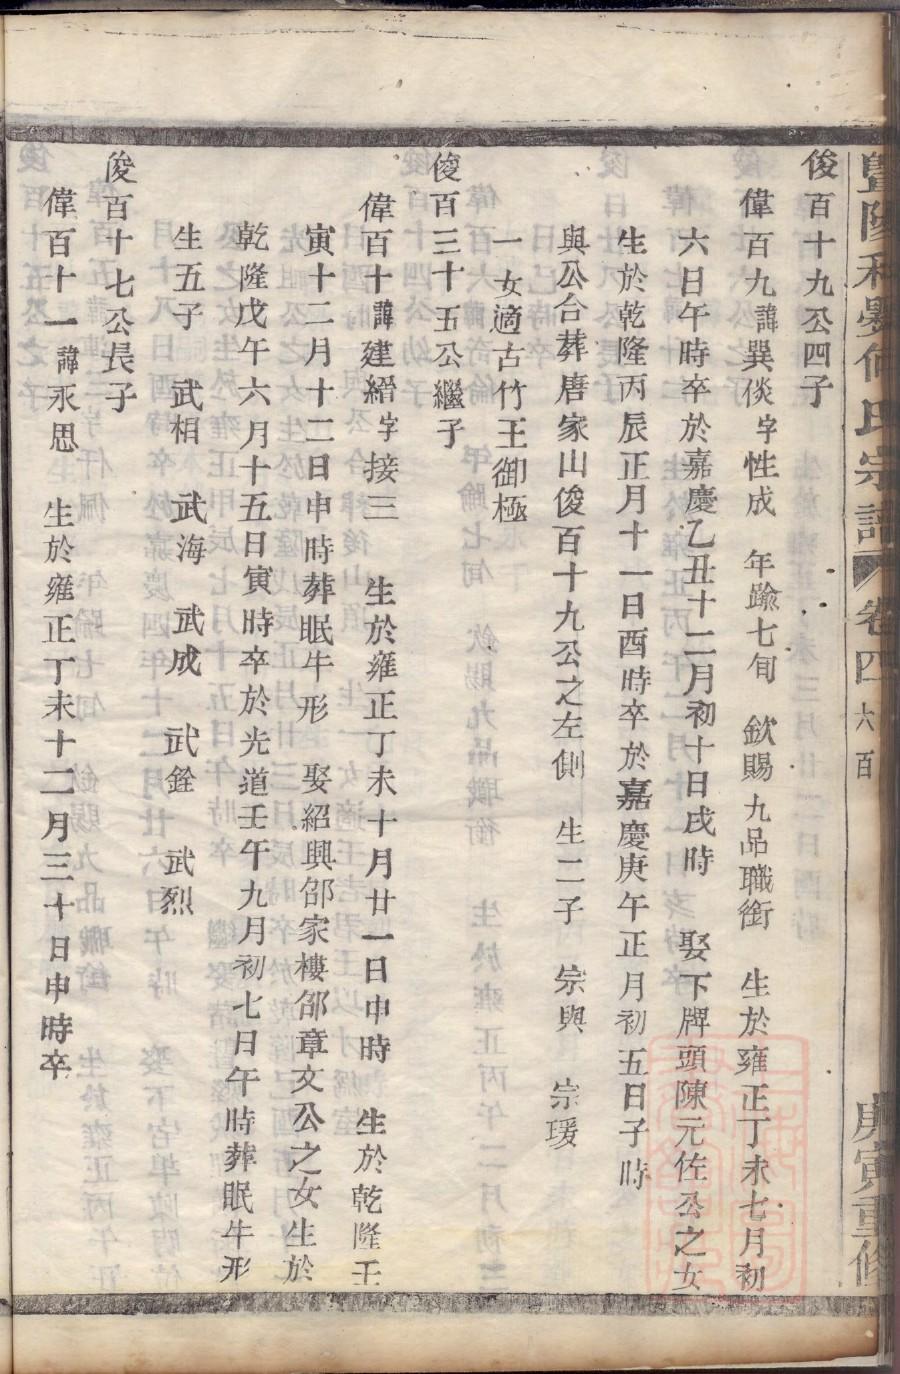 暨陽和㬢何氏宗譜 卷四 六百 庚寅重修
俊百十九公四子
偉百九諱巽倓字性成 年踰七旬 欽賜九品職銜 生於雍正丁未七月初
六日午時卒於嘉慶乙丑十二月初十日戌時 娶下牌頭陳元佐公之女
生於乾隆丙辰正月十一日酉時卒於嘉慶庚午正月初五日子時
與公合葬唐家山俊百十九公之左側 生二子 宗興 宗瑗
一女適古竹王御極
俊百三十五公繼子
偉百十諱建縉字接三 生於雍正丁未十月廿一日申時 生於乾隆壬
寅十二月十二日申時葬眠牛形 娶紹興邵家樓邵章文公之女生於
乾隆戊午六月十五日寅時卒於光道壬午九月初七日午時葬眠牛形
生五子 武相 武海 武成 武銓 武烈
俊百十七公長子
偉百十一諱永思 生於雍正丁未十二月三十日申時卒